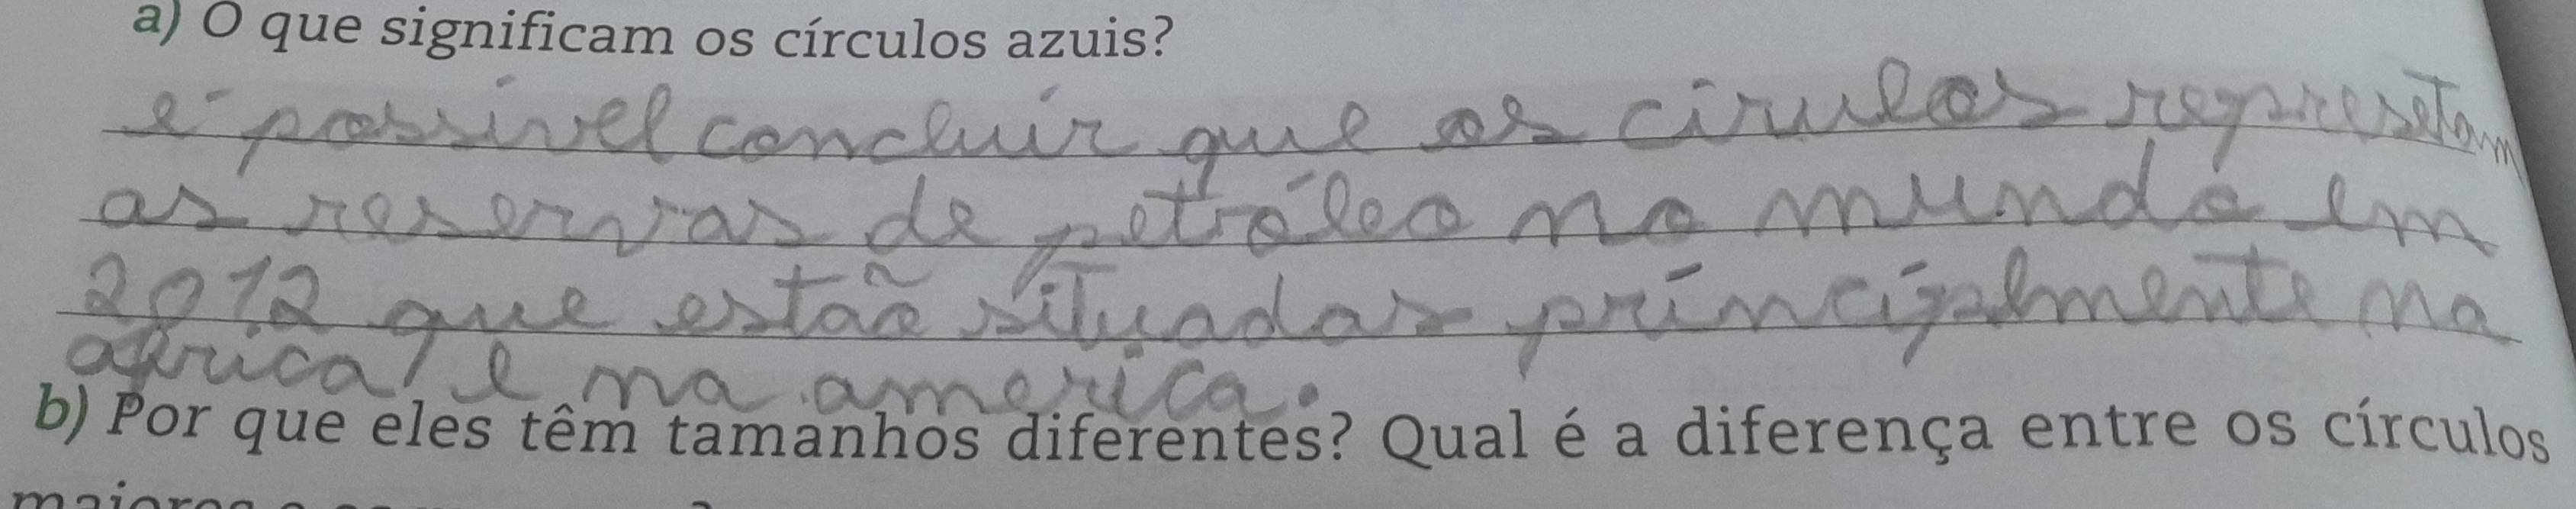 a) O que significam os círculos azuis?
é possível concluir que os cirulos represetam
as reservas de petróleo no mundo em
2012 que estão situadas principalmente na
africa e na america.
b) Por que eles têm tamanhos diferentes? Qual é a diferença entre os círculos